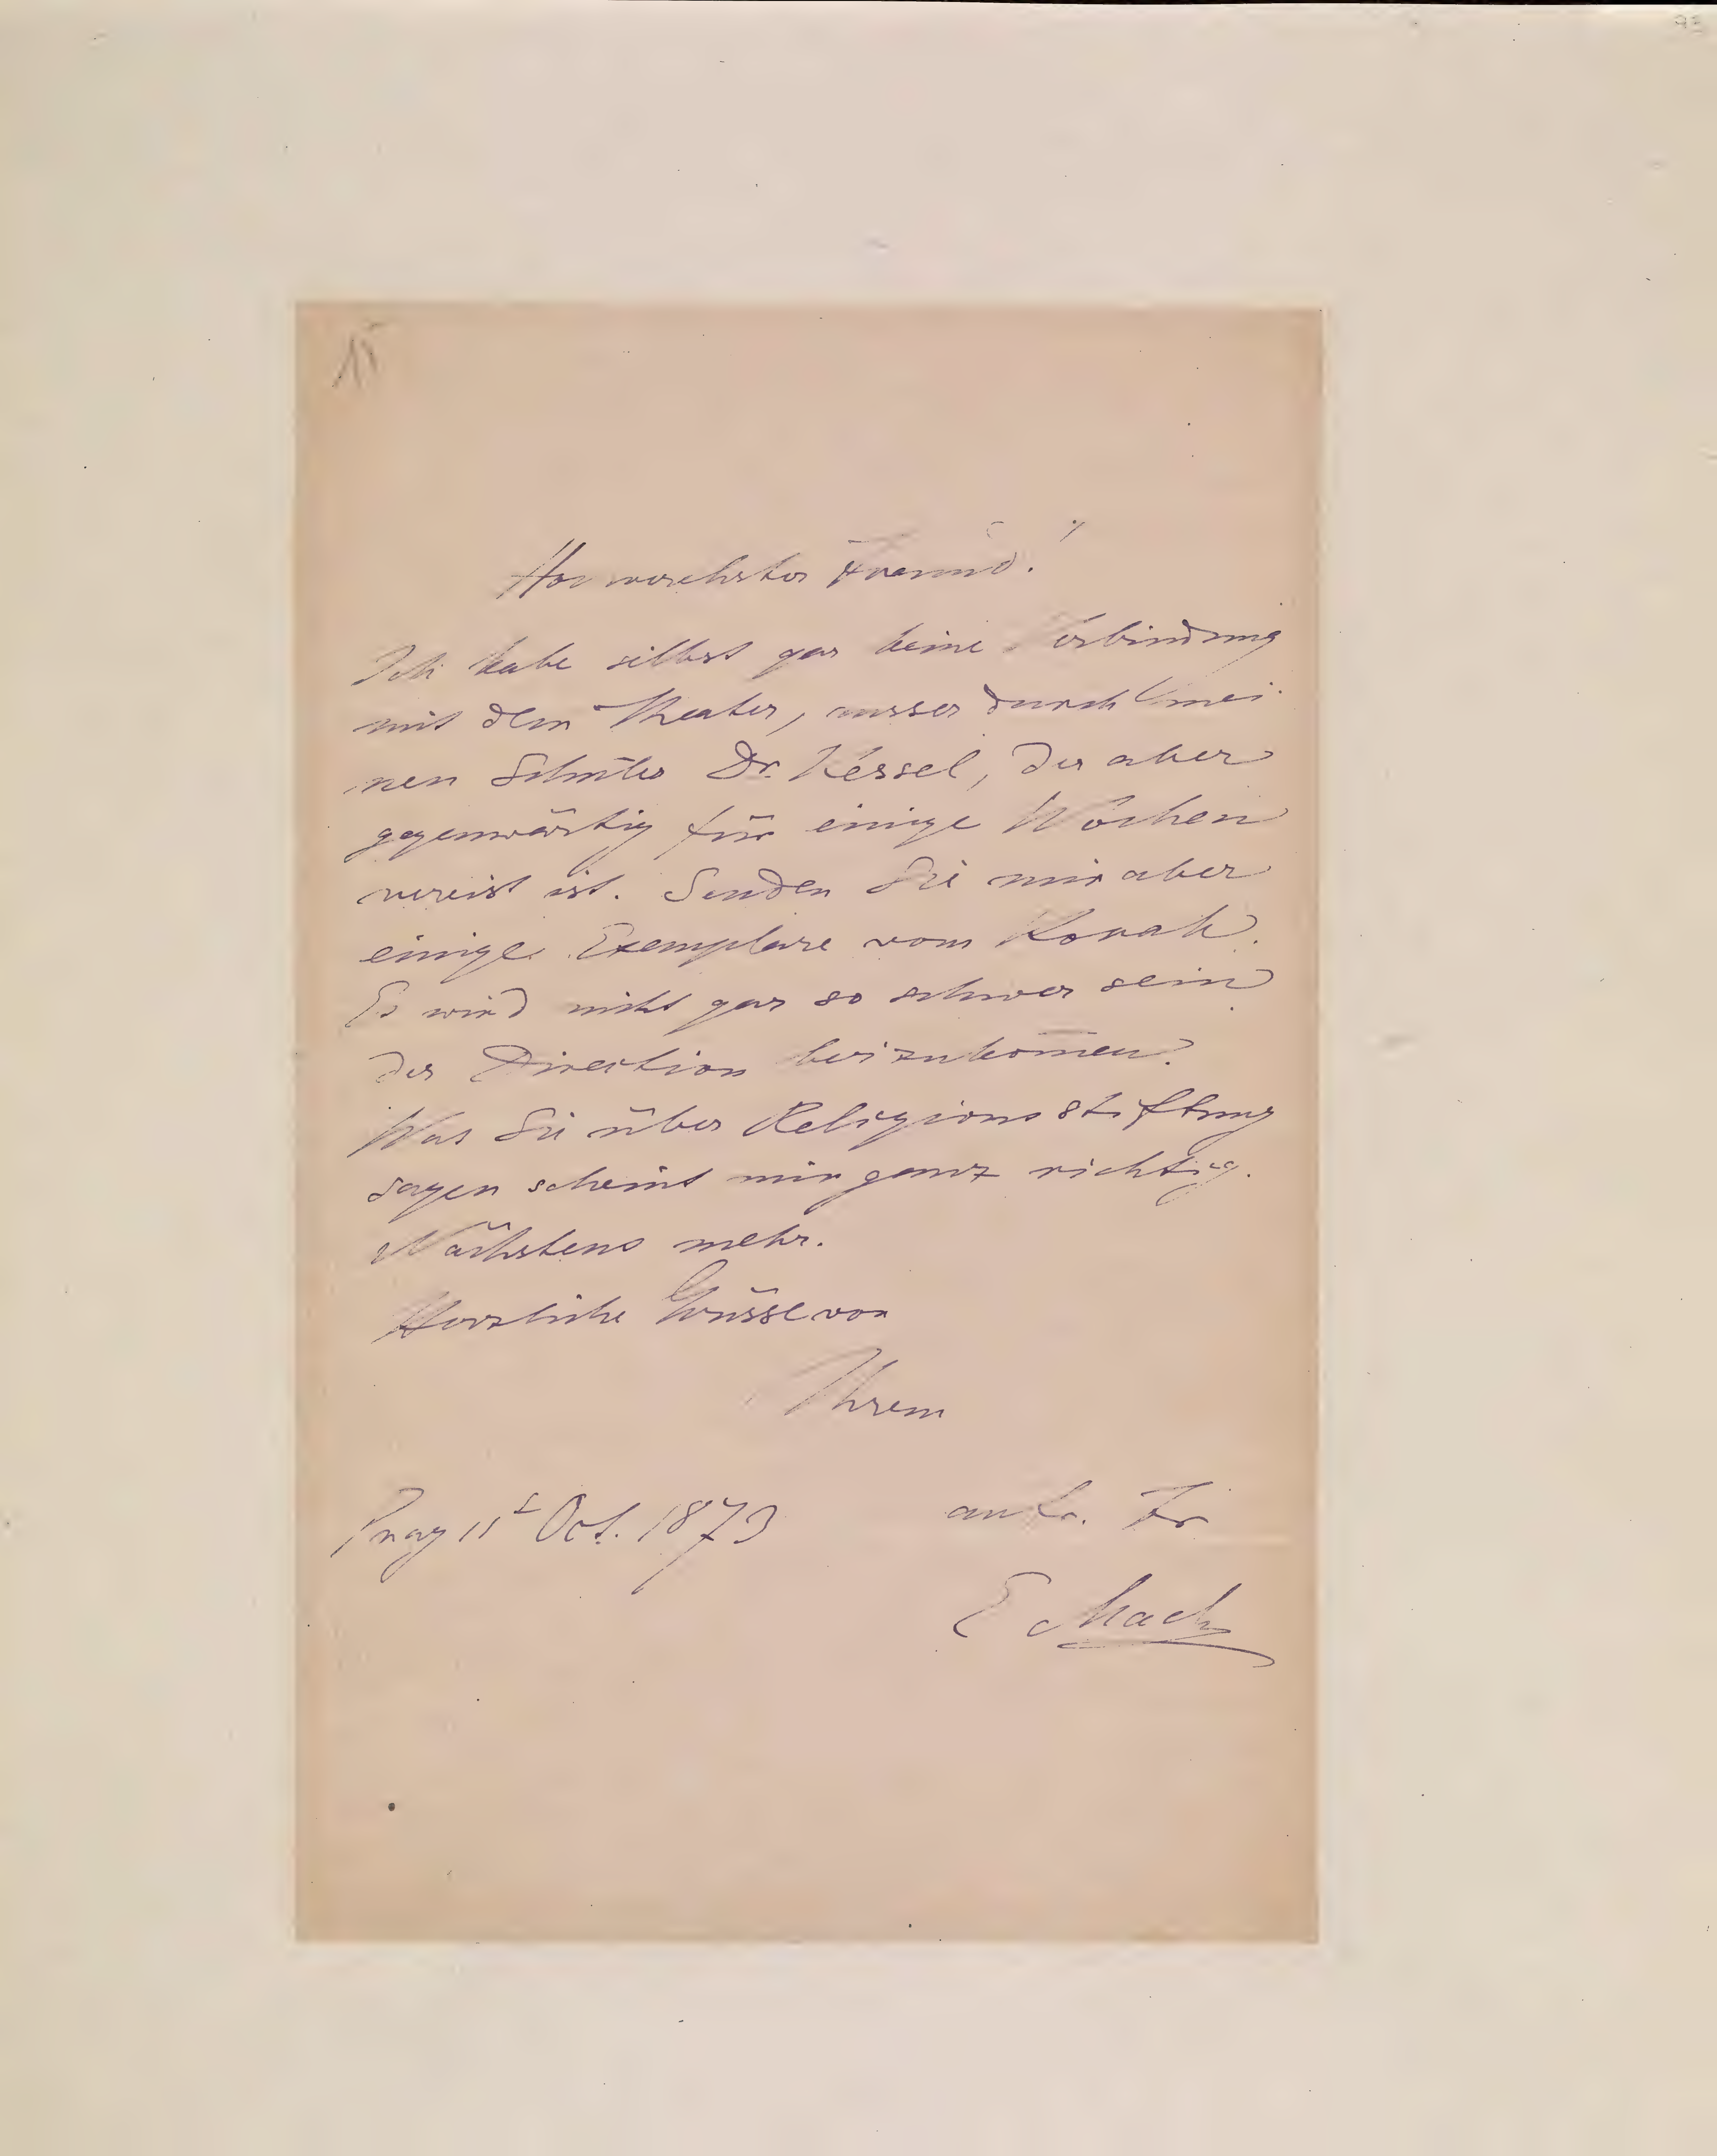 15
Hochverehrter Freund!
Ich habe selbst gar keine Verbindung
mit dem Theater, ausser durch mei
nen Schüler Dr. Kessel, der aber
gegenwärtig für einige Wochen
vereist ist. Senden Sie mir aber
einige Exemplare vom Korah.
Es wird nicht gar so schwer sein
der Direction beizukom̄en.
Was Sie über Religionsstiftung
sagen scheint mir ganz richtig.
Nächstens mehr.
Herzliche Grüsse von
Ihrem
aufr. Fr
Prag 11t Oct. 1873
E Mach